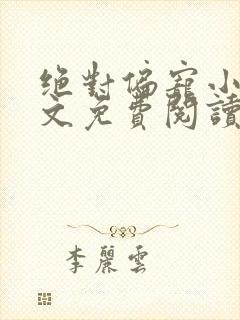 絕對偏寵小
文免費閱讀
李麗雲